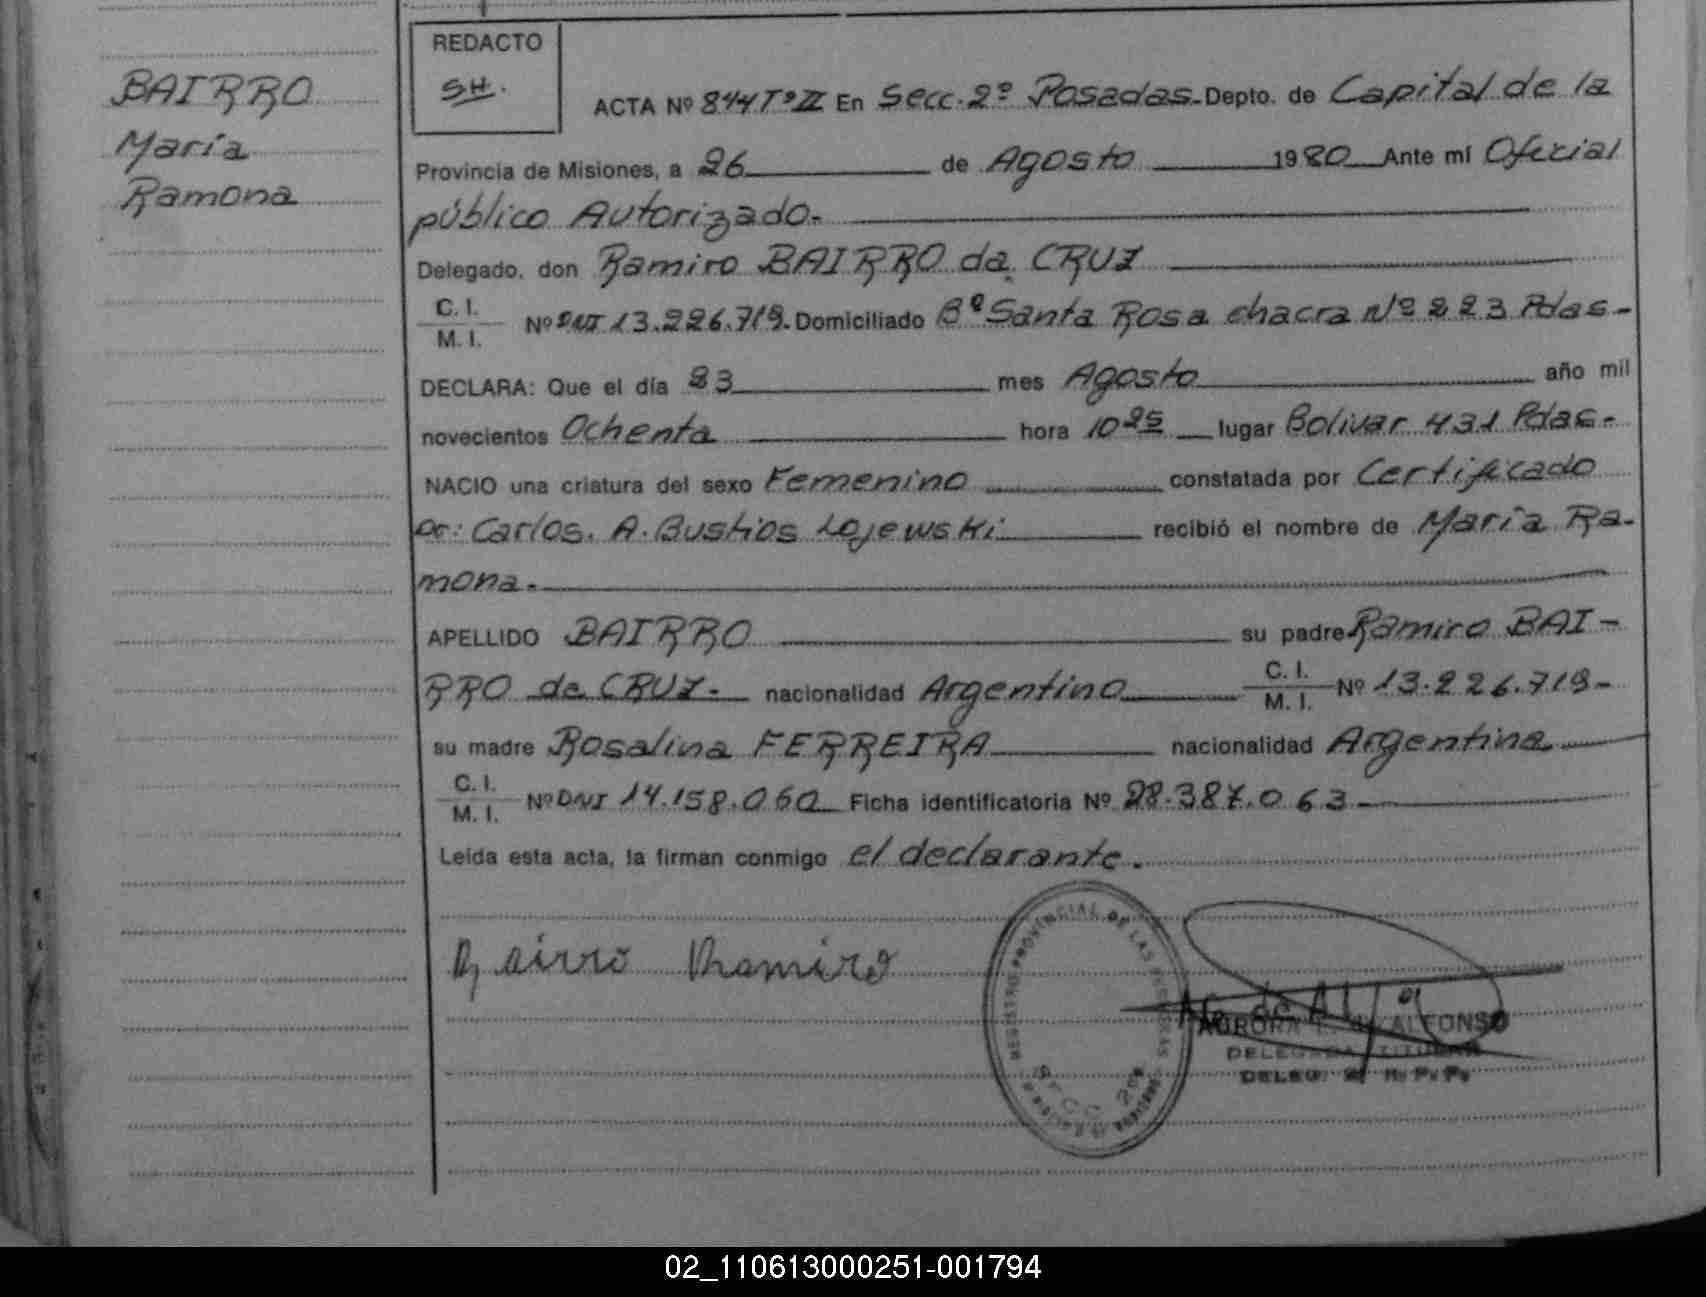 BAIRRO
María
Ramona
REDACTO
SH.
ACTA Nº 844 Tº II En Secc. 2º Posadas. Depto. de Capital de la
Provincia de Misiones, a 26 de Agosto 1980 Ante mí Oficial
público Autorizado.
Delegado, don Ramiro BAIRRO da CRUZ
C. I.
M. I. Nº DNI 13.226.719. Domiciliado Bº Santa Rosa chacra Nº 223 Pdas.
DECLARA: Que el día 23 mes Agosto año mil
novecientos Ochenta hora 10 25 lugar Bolivar 431 Pdas.
NACIO una criatura del sexo Femenino constatada por Certificado
Dr: Carlos. A. Bustios Lojewski recibió el nombre de María Ra-
mona.
APELLIDO BAIRRO su padre Ramiro BAI-
RRO da CRUZ. nacionalidad Argentino C. I.
M. I. Nº 13.226.719-
su madre Rosalina FERREIRA nacionalidad Argentina
C. I.
M. I. Nº DNI 14.158.060 Ficha identificatoria Nº 28.387.063
Leída esta acta, la firman conmigo el declarante.
Bairro Ramiro
REGISTRO PROVINCIAL DE LAS PERSONAS
SECC 2da
AURORA ALFONSO
DELEGADA TITULAR
DELEG. 2 R. P. P.
02_110613000251-001794